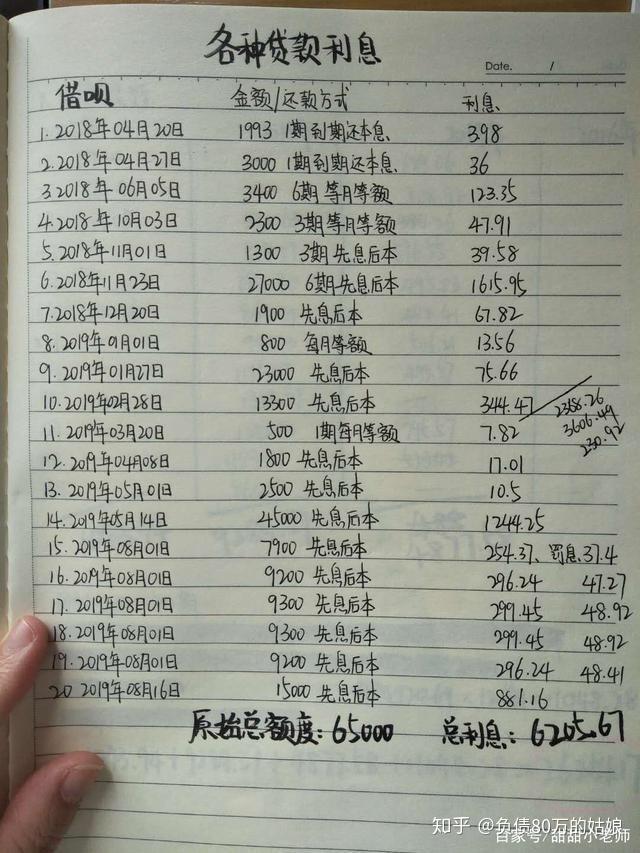 各种贷款利息
Date. /
借呗 金额/还款方式 利息
1.2018年04月20日 1993 1期到期还本息 398
2.2018年04月27日 3000 1期到期还本息 36
3.2018年06月05日 3400 6期等月等额 123.35
4.2018年10月03日 2300 3期等月等额 47.91
5.2018年11月01日 1300 3期先息后本 39.58
6.2018年11月23日 27000 6期先息后本 1615.95
7.2018年12月20日 1900 先息后本 67.82
8.2019年01月01日 800 每月等额 13.56
9.2019年01月27日 23000 先息后本 75.66
10.2019年02月28日 13300 先息后本 344.47 2368.26
3606.49
11.2019年03月20日 500 1期每月等额 7.82 230.92
12.2019年04月08日 1800先息后本 17.01
13.2019年05月01日 2500 先息后本 10.5
14.2019年05月14日 45000 先息后本 1244.25
15.2019年08月01日 7900 先息后本 254.37、罚息37.4
16.2019年08月01日 9200 先息后本 296.24 47.27
17.2019年08月01日 9300 先息后本 299.45 48.92
18.2019年08月01日 9300 先息后本 299.45 48.92
19.2019年08月01日 9200 先息后本 296.24 48.41
20 2019年08月16日 15000 先息后本 881.16
原始总额度:65000 总利息:6205.67
知乎 @负债80万的姑娘
百家号/甜甜小老师